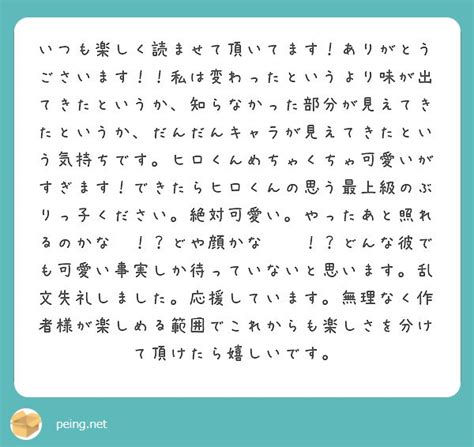 いつも楽しく読ませて頂いてます！ありがとう
ございます！！私は変わったというより味が出
てきたというか、知らなかった部分が見えてき
たというか、だんだんキャラが見えてきたとい
う気持ちです。ヒロくんめちゃくちゃ可愛いが
すぎます！できたらヒロくんの思う最上級のぶ
りっ子ください。絶対可愛い。やったあと照れ
るのかな　！？どや顔かな　　！？どんな彼で
も可愛い事実しか待っていないと思います。乱
文失礼しました。応援しています。無理なく作
者様が楽しめる範囲でこれからも楽しさを分け
て頂けたら嬉しいです。
peing.net